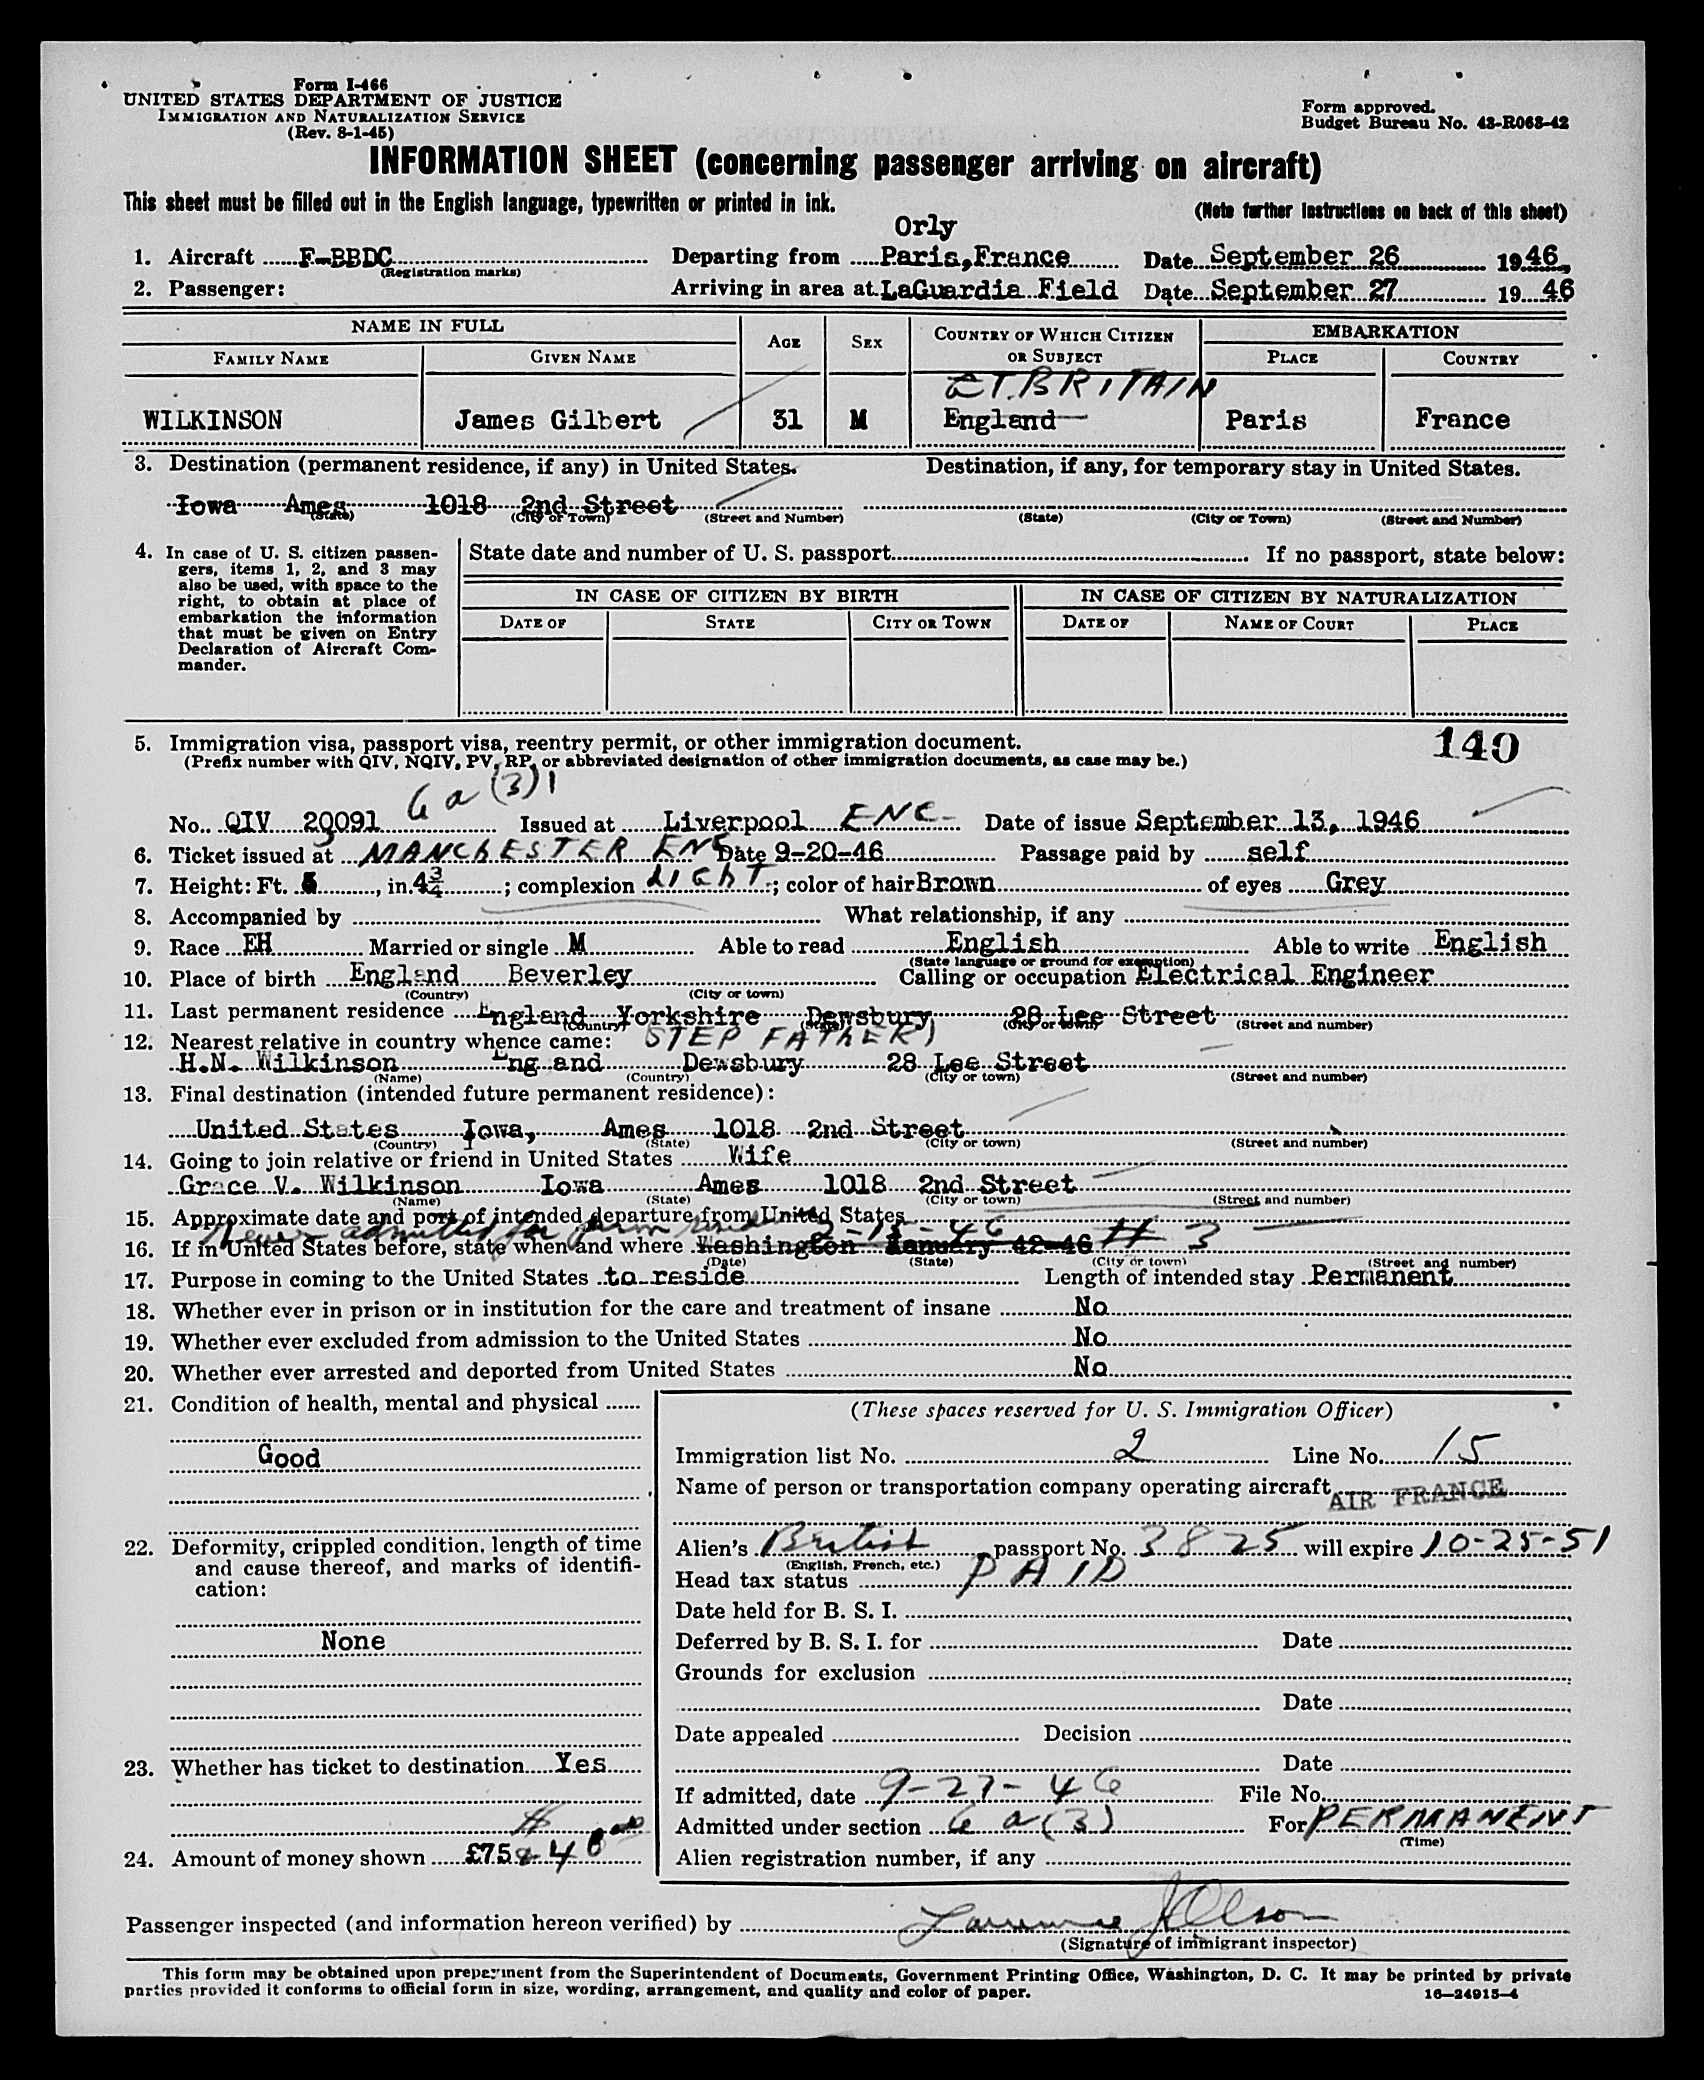 Form I-466
UNITED STATES DEPARTMENT OF JUSTICE
IMMIGRATION AND NATURALIZATION SERVICE
(Rev. 8-1-45)
Form approved.
Budget Bureau No. 43-R063-42
INFORMATION SHEET (concerning passenger arriving on aircraft)
This sheet must be filled out in the English language, typewritten or printed in ink.
(Note further instructions on back of this sheet)
Orly
1. Aircraft F-BBDC Departing from Paris, France Date September 26 1946,
(Registration marks)
2. Passenger: Arriving in area at LaGuardia Field Date September 27 1946
NAME IN FULL AGE SEX COUNTRY OF WHICH CITIZEN OR SUBJECT EMBARKATION
FAMILY NAME GIVEN NAME PLACE COUNTRY
GT. BRITAIN
WILKINSON James Gilbert 31 M England Paris France
3. Destination (permanent residence, if any) in United States. Destination, if any, for temporary stay in United States.
Iowa Ames 1018 2nd Street
(State) (City or Town) (Street and Number) (State) (City or Town) (Street and Number)
4. In case of U. S. citizen passengers, items 1, 2, and 3 may also be used, with space to the right, to obtain at place of embarkation the information that must be given on Entry Declaration of Aircraft Commander.
State date and number of U. S. passport If no passport, state below:
IN CASE OF CITIZEN BY BIRTH IN CASE OF CITIZEN BY NATURALIZATION
DATE OF STATE CITY OR TOWN DATE OF NAME OF COURT PLACE
140
5. Immigration visa, passport visa, reentry permit, or other immigration document.
(Prefix number with QIV, NQIV, PV, RP, or abbreviated designation of other immigration documents, as case may be.)
6a(3)1
No. QIV 20091 Issued at Liverpool ENG- Date of issue September 13, 1946
6. Ticket issued at MANCHESTER ENG. Date 9-20-46 Passage paid by self
7. Height: Ft. 5, in. 4 3/4; complexion LIGHT; color of hair Brown of eyes Grey
8. Accompanied by What relationship, if any
9. Race EH Married or single M Able to read English Able to write English
(State language or ground for exemption)
10. Place of birth England Beverley Calling or occupation Electrical Engineer
(Country) (City or town)
11. Last permanent residence England Yorkshire Dewsbury 28 Lee Street
(Country) (State) (City or town) (Street and number)
12. Nearest relative in country whence came: STEP FATHER)
H.N. Wilkinson Eng and Dewsbury 28 Lee Street
(Name) (Country) (City or town) (Street and number)
13. Final destination (intended future permanent residence):
United States Iowa, Ames 1018 2nd Street
(Country) (State) (City or town) (Street and number)
14. Going to join relative or friend in United States Wife
Grace V. Wilkinson Iowa Ames 1018 2nd Street
(Name) (State) (City or town) (Street and number)
15. Approximate date and port of intended departure from United States
Never admitted for perm residence 2-15-46 # 3
16. If in United States before, state when and where Washington January 42-46
(Date) (State) (City or town) (Street and number)
17. Purpose in coming to the United States to reside Length of intended stay Permanent
18. Whether ever in prison or in institution for the care and treatment of insane No
19. Whether ever excluded from admission to the United States No
20. Whether ever arrested and deported from United States No
21. Condition of health, mental and physical
Good
22. Deformity, crippled condition, length of time and cause thereof, and marks of identification:
None
23. Whether has ticket to destination Yes
24. Amount of money shown £75 & $ 40 00
(These spaces reserved for U. S. Immigration Officer)
Immigration list No. 2 Line No. 15
Name of person or transportation company operating aircraft AIR FRANCE
Alien's British passport No. 3825 will expire 10-25-51
(English, French, etc.)
Head tax status PAID
Date held for B. S. I.
Deferred by B. S. I. for Date
Grounds for exclusion
Date
Date appealed Decision
Date
If admitted, date 9-27-46 File No.
Admitted under section 6a(3) For PERMANENT
(Time)
Alien registration number, if any
Passenger inspected (and information hereon verified) by Lawrence J Olson
(Signature of immigrant inspector)
This form may be obtained upon prepayment from the Superintendent of Documents, Government Printing Office, Washington, D. C. It may be printed by private
parties provided it conforms to official form in size, wording, arrangement, and quality and color of paper.
16—24915-4